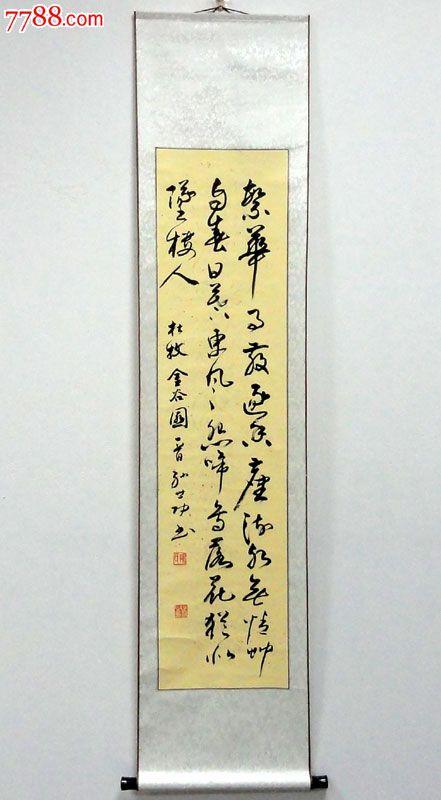 7788.com
繁華事散逐香塵流水無情艸
自春日暮東風怨啼鳥落花猶似
墜樓人
杜牧金谷園